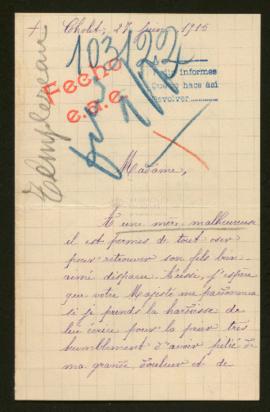 + Cholet, 27 juin 1916
103/22
Fecho
e.a.e.
informes
hace así
devolver
Templereau
Madame,
A une mère malheureuse
il est permis de tout oser
pour retrouver son fils bien-
aimé disparu. Aussi, j'espère
que votre Majesté me pardonnera
si je prends la hardiesse de
lui écrire pour la prier très
humblement d'avoir pitié de
ma grande douleur et de